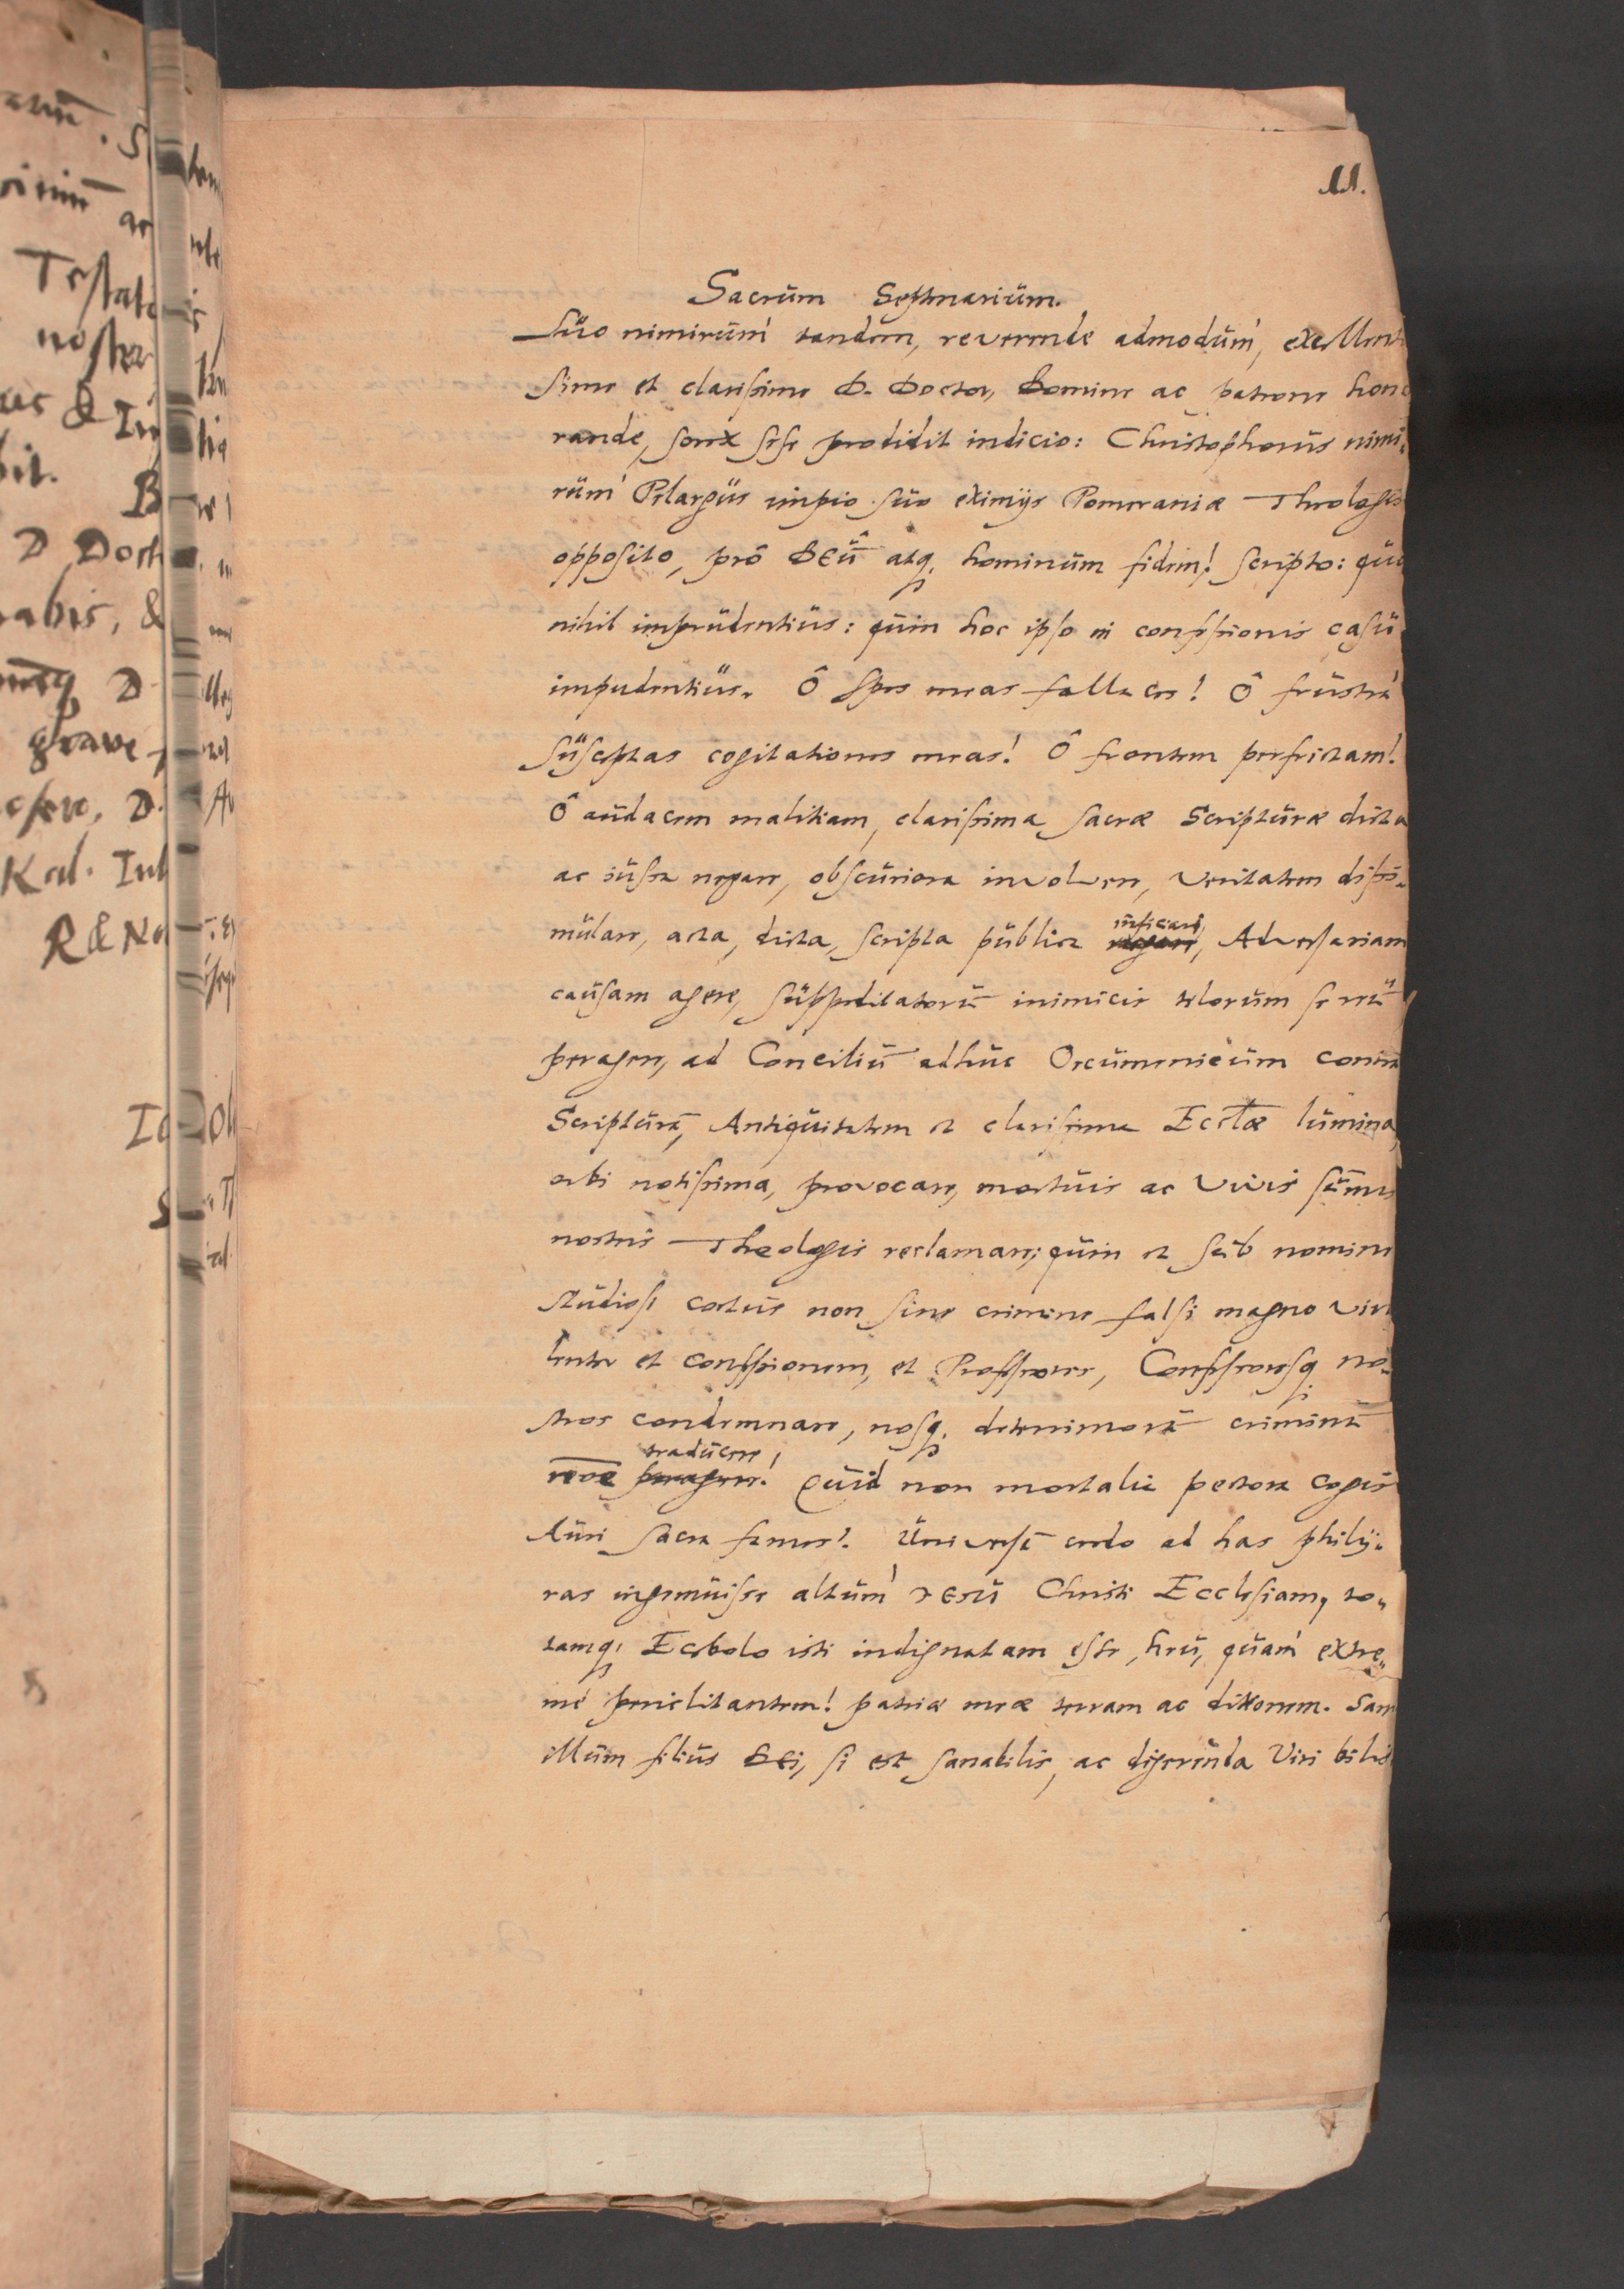 11.
Sacrum Septenarium.
Suo nimirum tandem, reverende admodum, excellentis
sime et clarissime D. Doctor, Domine ac patrone hono
rande, sorex sese prodidit indicio: Christophorus nimi-
rum Pelargus impio suo eximijs Pomeraniæ Theologis
opposito, prô DEÛ atq. hominum fidem! scripto: quo
nihil imprudentius: quin hoc ipso in confessionis casu
impudentius. Ô spes meas fallaces! Ô frustrà
susceptas cogitationes meas! Ô frontem perfrictam!
Ô audacem malitiam, clarissima sacræ Scripturæ dicta
ac iussa negare, obscuriora involvere, veritatem dissi-
mulare, acta, dicta, scripta publica inficiari, Adversariam
causam agere, suppeditatorū inimicis telorum se reū
peragere, ad Conciliū adhuc Oecumenicum contra
Scripturā, Antiquitatem et clarissima Eccłæ lumina,
orbi notissima, provocare, mortuis ac vivis summis
nostris Theologis reclamare; quin et sub nomine
studiosi coetus non sine crimine falsi magno viru
lenter et confessionem, et Professores, Confessoresq no-
stros condemnare, nosq. deterrimorū criminū
reos traducere! Quid non mortalia pectora cogis
Auri sacra fames! Universā credo ad has phily-
ras ingemuisse altum IESU Christi Ecclesiam, to-
tamq. Ecbolo isti indignatam esse, heu, quàm extre-
mè periclitantem! patriæ meæ terram ac ditionem. Sanet
illum filius DEI, si est sanabilis, ac digerenda Viri bilis